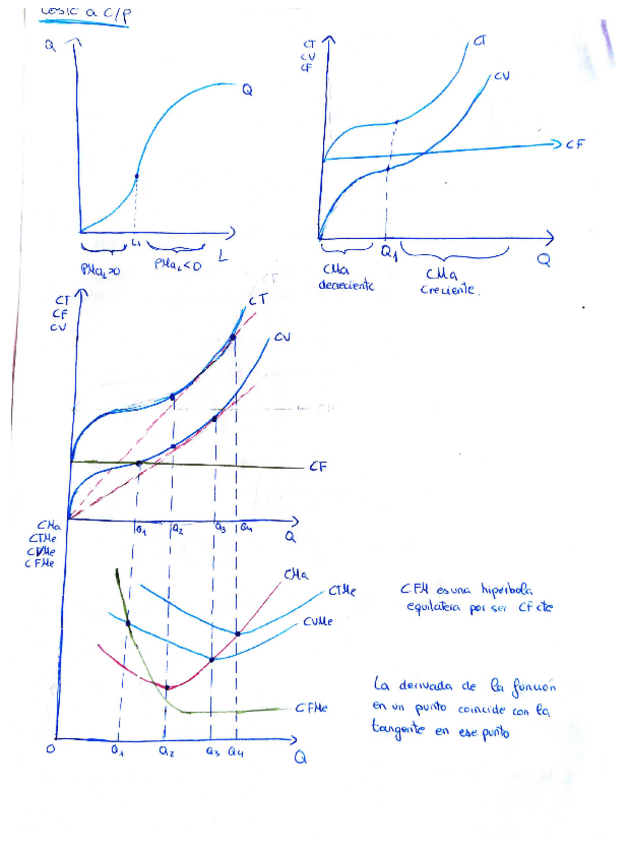 COSTE a C/P
Q
Q
L1
L
PMaL>0
PMaL<0
CT
CV
CF
CT
CV
CF
Q1
Q
CMa
decreciente
CMa
Creciente.
CT
CF
CV
CT
CT
CV
CF
Q1
Q2
Q3
Q4
Q
CMa
CTMe
CVMe
CFMe
CMa
CTMe
CVMe
CFMe
O
Q1
Q2
Q3
Q4
Q
CFM es una hipérbola
equilatera por ser CF cte
La derivada de la función
en un punto coincide con la
tangente en ese punto